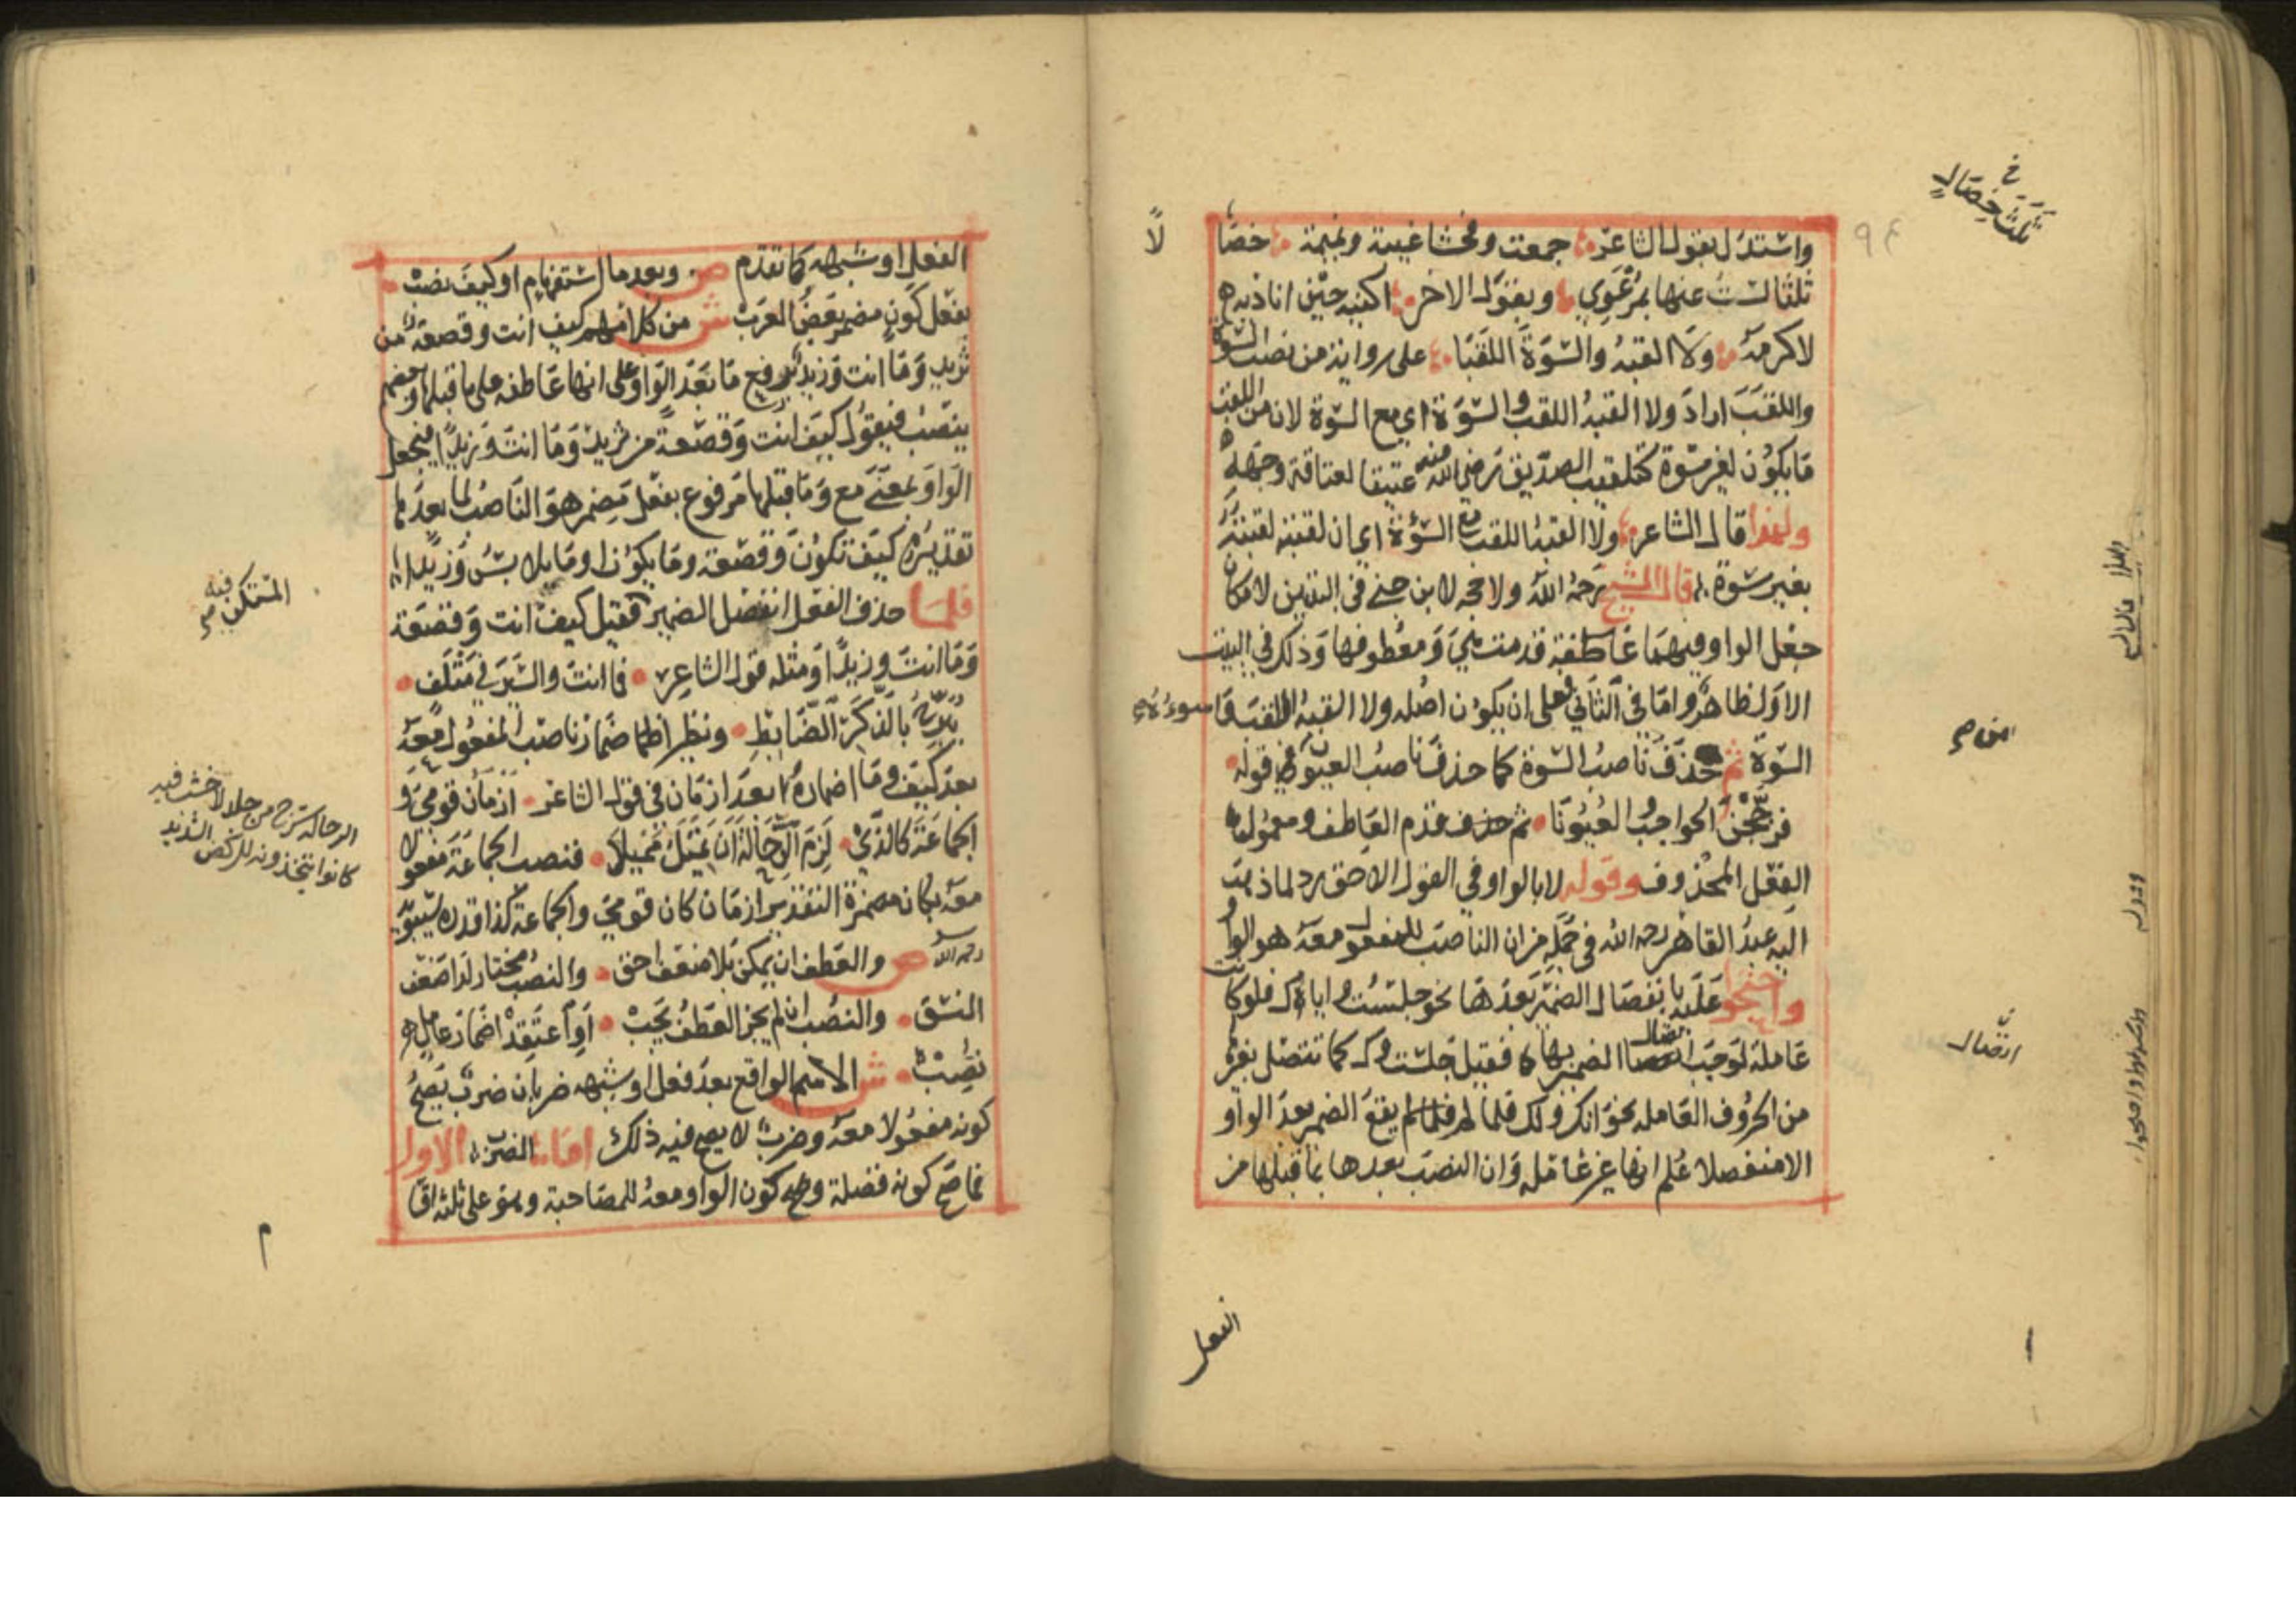 واستدل بقول الشاعر جمعت وفحشا غيبة ونميمة خصا
لاً
ثلثا لست عنها بمرعوي وبقول الاخر اكنيه حين اناديه
لاكرمه ولا القبه والسوة اللقبا على رواية من نصب السوة
واللقب اراد ولا القبه اللقب والسوة اي مع السوة لان من اللقب
ما يكون لغير سوة كتلقيب الصديق رضي الله عنه عتيقا لعتاقة وجهه
ولهذا قال الشاعر ولا القبه اللقب مع السوة اي ان لقبته لقبته
بغير سوة قال الشيخ رحمه الله ولا حجه لابن جني في البيتين لامكان
جعل الواو فيهما عاطفة قدمت هي ومعطوفها وذلك في البيت
الاول ظاهر واما في الثاني فعلى ان يكون اصله ولا القبه اللقب
السوة ثم حذف ناصب السوة كما حذف ناصب العيون في قوله
فزججن الحواجب والعيونا ثم حذف قدم العاطف ومعمول
الفعل المحذوف وقوله لا بالواو في القول الاحق رد لما ذهب
اليه عبد القاهر رحمه الله في جمله من ان الناصب للمفعول معه هو الواو
واحتجوا عليه بانفصال الضمير بعدها نحو جلست واياك فلو كانت
عاملة لوجب اتصال الضمير بها فقيل جلست وك كما تتصل بغيرها
من الحروف العامله نحو انك ولك فلما لم يقع الضمير بعد الواو
الا منفصلا علم انها غير عاملة وان النصب بعدها بما قبلها من
ثلث خصال
اتصال
الفعل
الفعل او شبهه كما تقدم ص وبعد ما استفهام او كيف نصب
بفعل كون مضمر بعض العرب ش من كلامهم كيف انت وقصعة من
ثريد وما انت وزيد برفع ما بعد الواو على انها عاطفه على ما قبلها وبعضهم
ينصب فيقول كيف انت وقصعة من ثريد وما انت وزيدا فيجعل
الواو بمعنى مع وما قبلها مرفوع بفعل مضمر هو الناصب لما بعدها
تقديره كيف تكون وقصعة وما يكون او ما تلابس وزيدا
فلما حذف الفعل انفصل الضمير فقيل كيف انت وقصعة
المستكن فيه
وما انت وزيدا ومثله قول الشاعر فما انت والسير في متلف
يبرح بالذكر الضابط ونظير اضمار ناصب المفعول معه
بعد كيف وما اضماره بعد ازمان في قول الشاعر ازمان قومي و
الرحالة سرج من جلد لا خشب فيه
كانوا يتخذونه للركض الشديد
الجماعة كالذي لزم الرحالة ان تميل مميلا فنصب الجماعة مفعولا
معه بكان مضمرة التقدير ازمان كان قومي والجماعة كذا قدره سيبويه
رحمه الله ص والعطف ان يمكن بلا ضعف احق والنصب مختار لدا ضعف
النسق والنصب ان لم يجز العطف يجب او اعتقد اضمار عامل
تصب ش الاسم الواقع بعد فعل او شبهه ضربان ضرب يصح
كونه مفعولا معه وضرب لا يصح فيه ذلك اما الضرب الاول
فما صح كونه فضلة وصح كون الواو معه للمصاحبة وهو على ثلثه اقـ